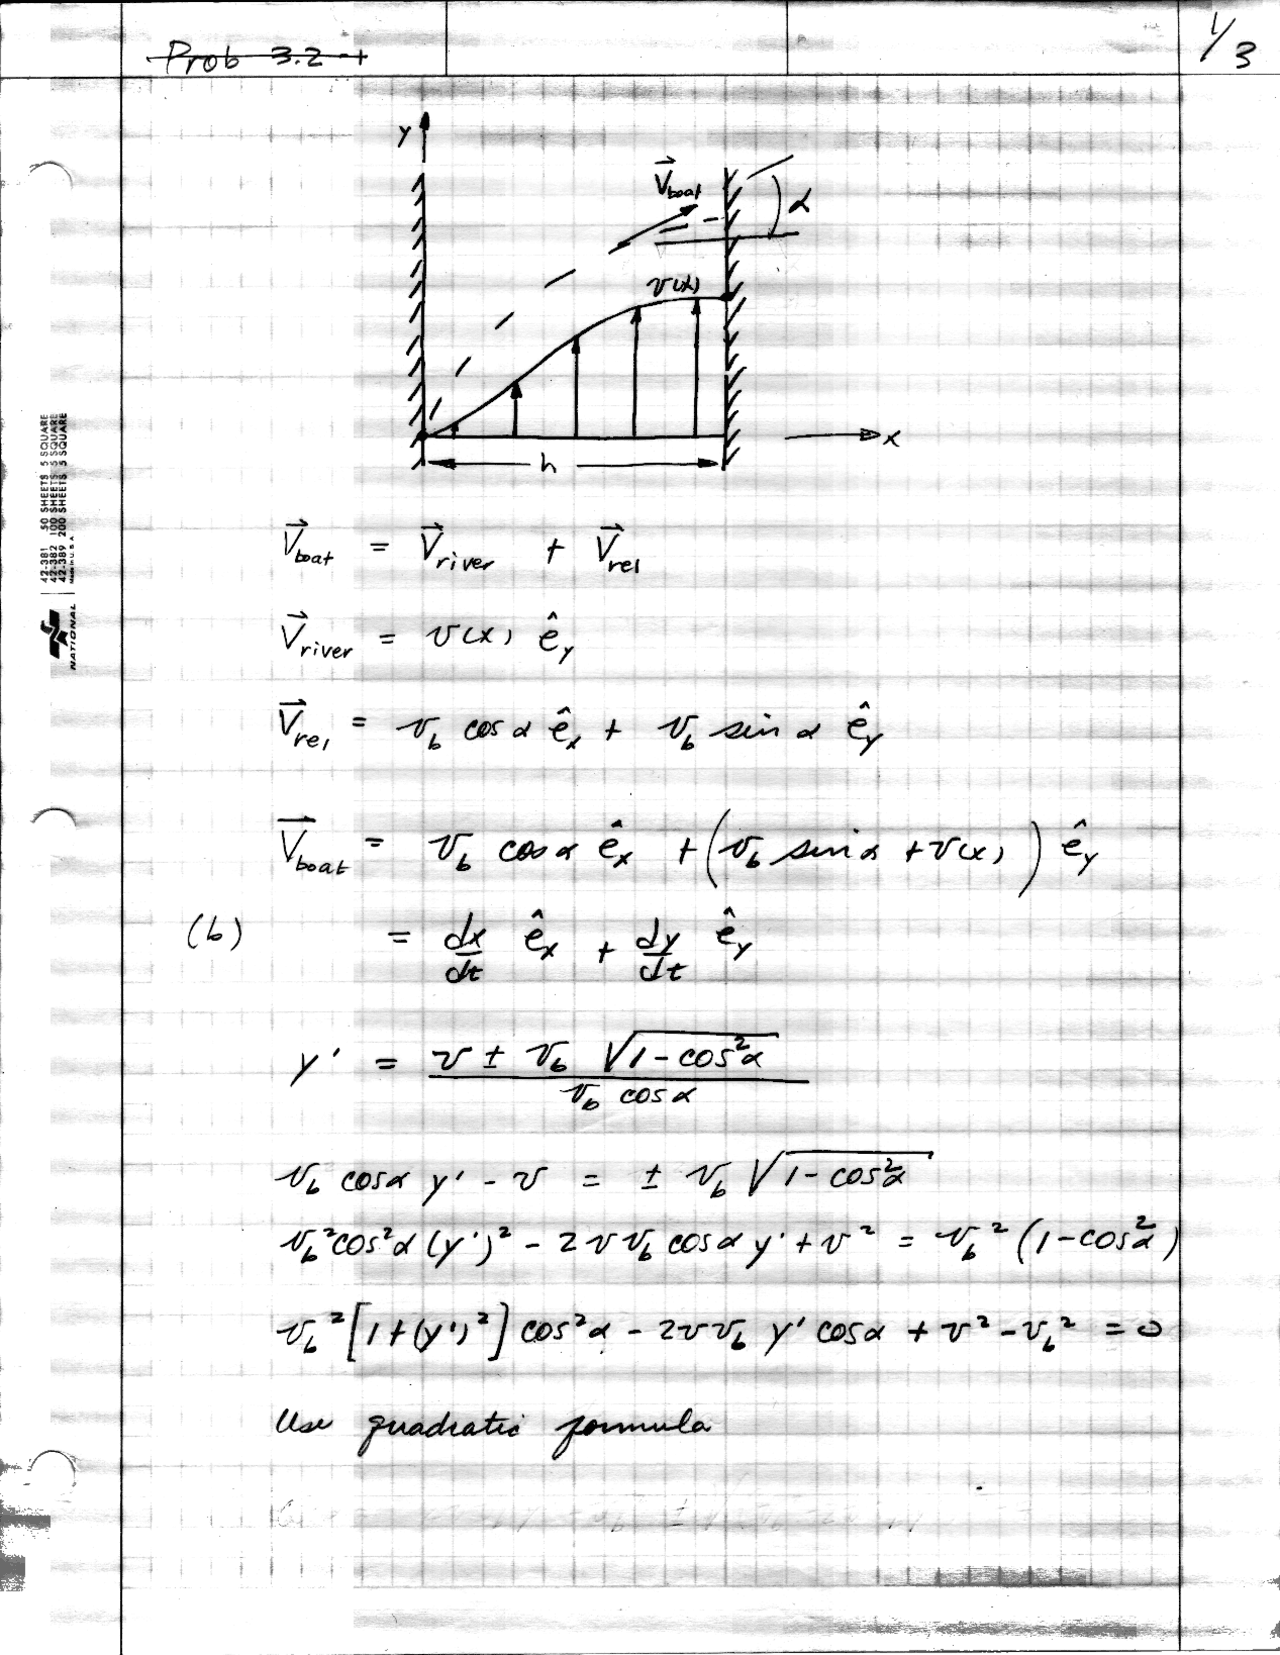 Prob 3.2-1
1/3
y
V⃗boat
α
v(x)
x
h
42-381 50 SHEETS 5 SQUARE
42-382 100 SHEETS 5 SQUARE
42-389 200 SHEETS 5 SQUARE
NATIONAL
Made in U.S.A.
V⃗boat = V⃗river + V⃗rel
V⃗river = v(x) ê_y
V⃗rel = v_b cos α ê_x + v_b sin α ê_y
V⃗boat = v_b cos α ê_x + (v_b sin α + v(x)) ê_y
(b) = dx/dt ê_x + dy/dt ê_y
y' = (v ± v_b √(1-cos²α)) / (v_b cos α)
v_b cos α y' - v = ± v_b √(1-cos²α)
v_b² cos²α (y')² - 2 v v_b cos α y' + v² = v_b² (1-cos²α)
v_b² [1+(y')²] cos²α - 2 v v_b y' cos α + v² - v_b² = 0
Use quadratic formula